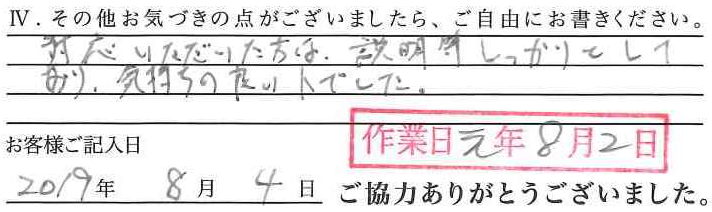 Ⅳ．その他お気づきの点がございましたら、ご自由にお書きください。
対応いただいた方は、説明等しっかりとして
おり、気持ちの良い人でした。
お客様ご記入日
作業日元年8月2日
2019年 8月 4日 ご協力ありがとうございました。